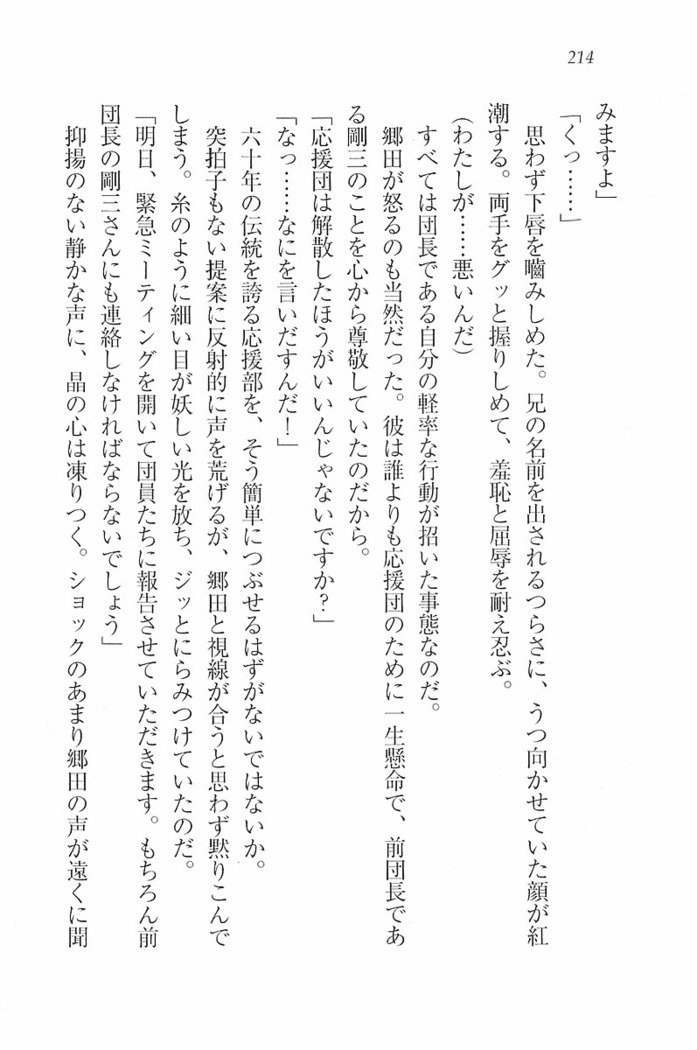 214
みますよ」
「くっ……」
思わず下唇を嚙みしめた。兄の名前を出されるつらさに、うつ向かせていた顔が紅
潮する。両手をグッと握りしめて、羞恥と屈辱を耐え忍ぶ。
（わたしが……悪いんだ）
すべては団長である自分の軽率な行動が招いた事態なのだ。
郷田が怒るのも当然だった。彼は誰よりも応援団のために一生懸命で、前団長であ
る剛三のことを心から尊敬していたのだから。
「応援団は解散したほうがいいんじゃないですか？」
「なっ……なにを言いだすんだ！」
六十年の伝統を誇る応援部を、そう簡単につぶせるはずがないではないか。
突拍子もない提案に反射的に声を荒げるが、郷田と視線が合うと思わず黙りこんで
しまう。糸のように細い目が妖しい光を放ち、ジッとにらみつけていたのだ。
「明日、緊急ミーティングを開いて団員たちに報告させていただきます。もちろん前
団長の剛三さんにも連絡しなければならないでしょう」
抑揚のない静かな声に、晶の心は凍りつく。ショックのあまり郷田の声が遠くに聞